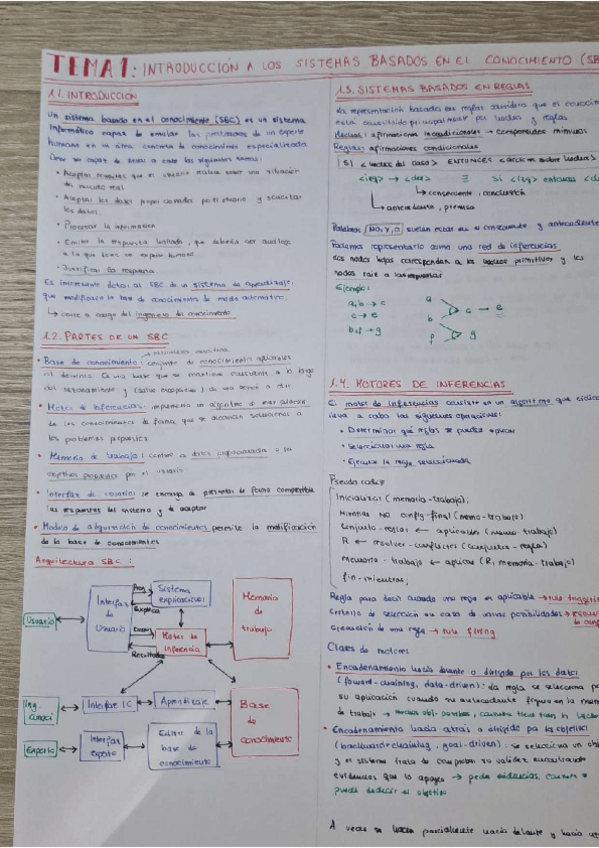 TEMA 1: INTRODUCCIÓN A LOS SISTEMAS BASADOS EN EL CONOCIMIENTO (SB
1.1. INTRODUCCIÓN
Un sistema basado en el conocimiento (SBC) es un sistema
informático capaz de emular las prestaciones de un experto
humano en un área concreta de conocimiento especializado
Debe ser capaz de llevar a cabo las siguientes tareas:
• Aceptar que el usuario realiza sobre una situación
del mundo real
• Aceptar los datos proporcionados por el usuario y solicitar
los datos.
• Procesar la información
• Emitir la respuesta, que debería ser análoga
a la que tiene un experto humano
• Justificar la respuesta
Es interesante dotar al SBC de un sistema de aprendizaje,
que modifica la base de conocimiento de modo automático.
↳ corre a cargo del ingeniero del conocimiento
1.2. PARTES DE UN SBC
• Base de conocimiento: conjunto de conocimientos
al dominio. Es una base que se mantiene constante a lo largo
del razonamiento y (salvo excepciones) de una sesión a otra.
• Motor de inferencias: implementa un algoritmo
de los conocimientos de forma que se alcanzan soluciones a
los problemas propuestos
• Memoria de trabajo: contiene los datos
por el usuario
• Interfaz de usuario: se encarga de presentar de forma comprensible
las respuestas del sistema y de aceptar
• Modelo de adquisición de conocimientos permite la modificación
de la base de conocimientos
Arquitectura SBC:
Usuario
Interfaz de Usuario
Preg.
Explica
Sistema explicaciones
Resultados
Motor de inferencia
Memoria de trabajo
Ing. Conoci
Interfaz IC
Aprendizaje
Base de conocimiento
Experto
Interfaz experto
Editor de la base de conocimiento
1.3. SISTEMAS BASADOS EN REGLAS
La representación basada en reglas considera que el conocim
está constituido principalmente por hechos y reglas
Hechos: afirmaciones incondicionales → componentes mínimos
Reglas: afirmaciones condicionales
SI < hechos del caso > ENTONCES < acciones sobre hechos >
<izq> → <der> ≡ si <izq> entonces <d
↳ consecuente, conclusión
↳ antecedente, premisa
Palabras NO, Y, O suelen estar en el consecuente y antecedente
Podemos representarlo como una red de inferencias
los nodos hojas correspondan a los hechos primitivos y los
nodos raíz a las respuestas
Ejemplo:
a, b → c
c → e
b, f → g
a
b
f
c → e
g
1.4. MOTORES DE INFERENCIAS
El motor de inferencias consiste en un algoritmo que
lleva a cabo las siguientes operaciones:
• Determinar qué reglas se pueden aplicar
• Seleccionar una regla
• Ejecutar la regla seleccionada
Pseudo código
Inicializar (memoria-trabajo);
Mientras NO config-final (memo-trabajo)
Conjunto-reglas ← aplicación (memo-trabajo)
R ← resolver-conflictos (conjunto-regla)
memoria-trabajo ← aplicar (R, memoria-trabajo)
fin-mientras;
Regla para decir cuando una regla es aplicable → rule triggerin
Criterio de selección en caso de varias posibilidades →
Ejecución de una regla → rule firing
Clases de motores
• Encadenamiento hacia delante o dirigido por los datos
(forward-chaining, data-driven): la regla se selecciona p
su aplicación cuando su antecedente figura en la mem
de trabajo →
• Encadenamiento hacia atrás o dirigido por los objetivos
(backward-chaining, goal-driven): se selecciona un ob
y el sistema trata de comprobar su validez encontrando
evidencias que lo apoyen →
puede deducir el objetivo
A veces se hacen parcialmente hacia delante y hacia at